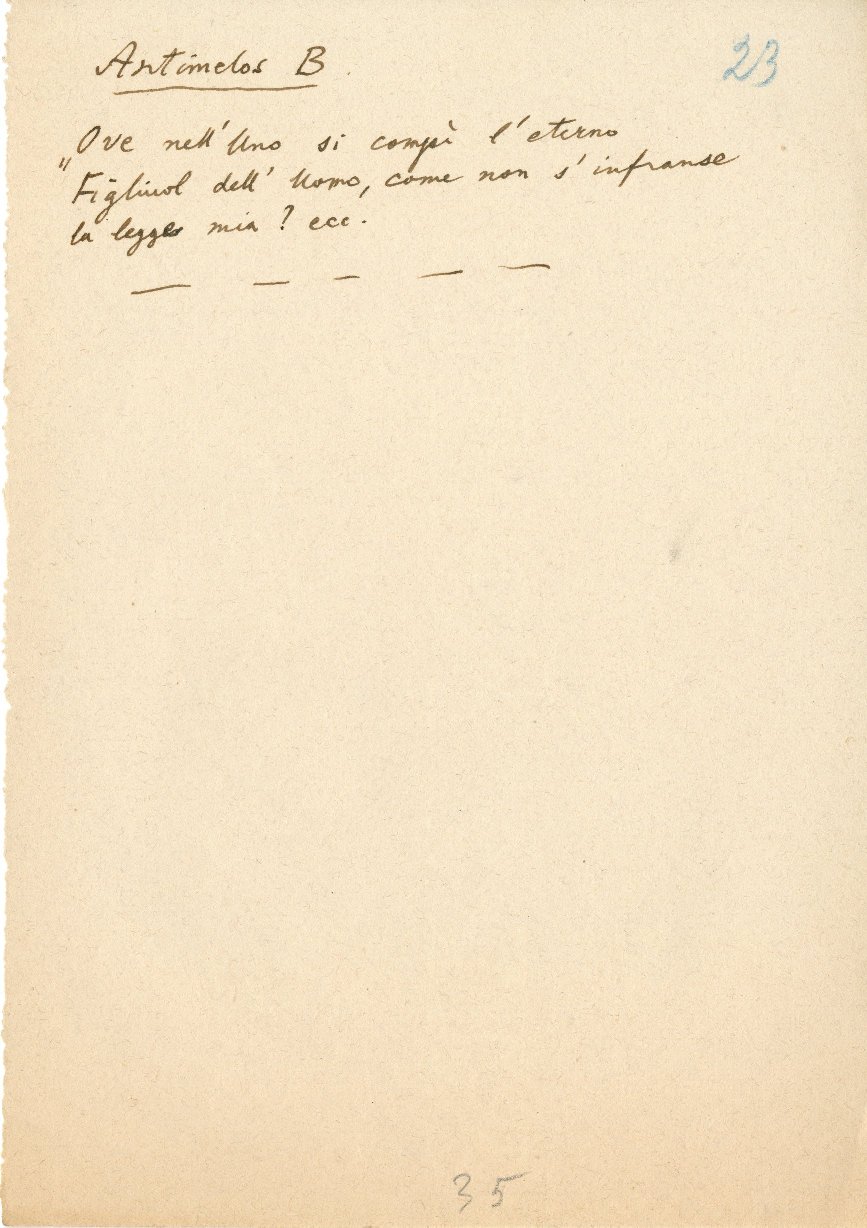 Antimelos B.
23
"Ove nell'Uno si compì l'eterno
Figliuol dell'Uomo, come non s'infranse
la legge mia? ecc.
— — — — —
35